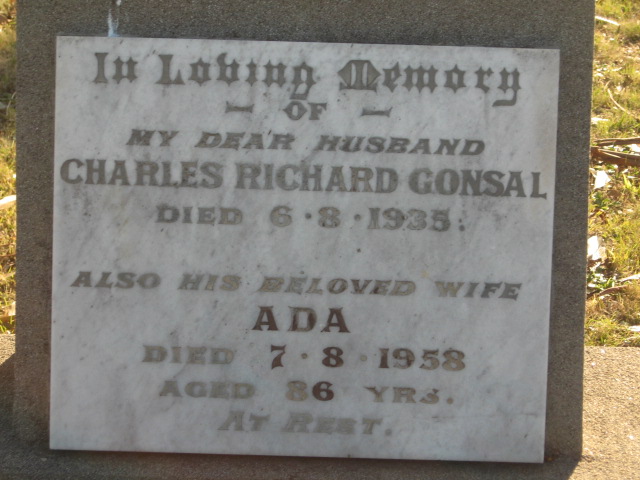 In Loving Memory
— OF —
MY DEAR HUSBAND
CHARLES RICHARD GONSAL
DIED 6·8·1935.
ALSO HIS BELOVED WIFE
ADA
DIED 7·8·1958
AGED 86 YRS.
AT REST.